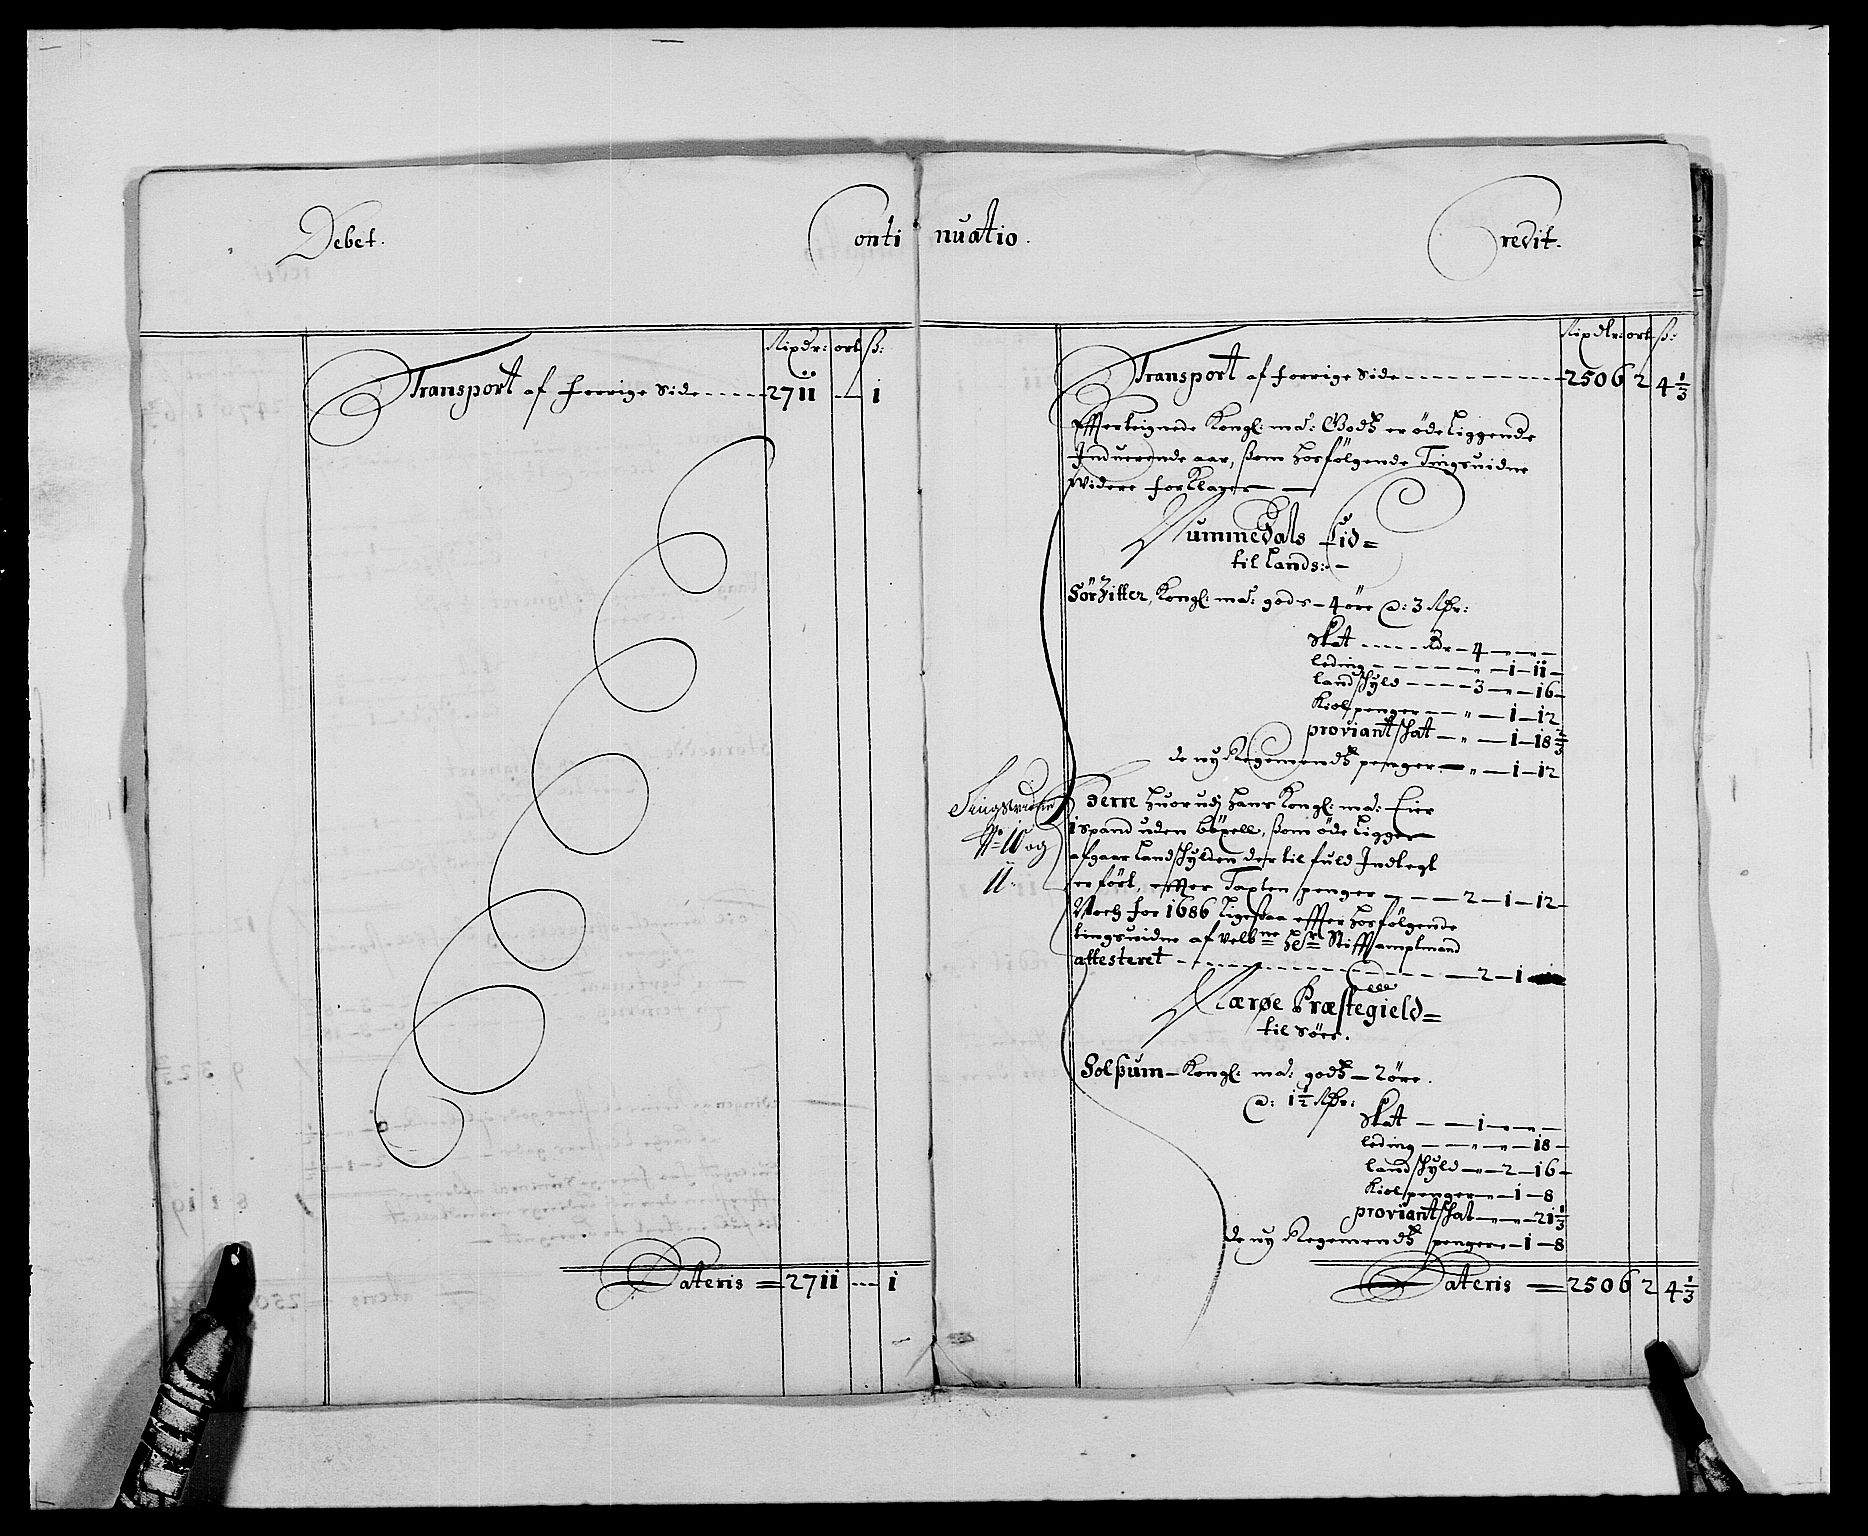 Debet. Continuatio. Credit.
Rixdr: ort ß:
Transport af forrige Side ----- 2711 --- 1
Lateris = 2711 --- 1
Rixdlr: ort ß:
Transport af forrige Side ---------- 2506 2 4 1/3
Effterteignede Kongl: ma: Godß er öde liggende
Induerende aar, ßom hosfölgende Tingsuidne
Widere forklarer
Nummedals Lid=
til lands:
Sör Zitter, Kongl: ma: gods - 4 öre a: 3 Rdr:
Skat ----- Rdr - 4 - „ - „ -
leding - - - - - „ - 1 - 11 -
landschyld - - - - 3 - „ - 16 -
Kiolpenger - - „ - 1 - 12
proviantschat - „ - 1 - 18 2/3
de ny Regemendß penger - „ - 1 - 12
Tingsvidne
No 10 og
11.
Herre huor udj hans Kongl: ma: Eier
1 spand uden böxell, ßom öde ligger
afgaar landschylden der til fuld Indtegt
er fört, effter Taxten penger - - - 2 - 1 - 12
Noch for 1686 ligeßaa effter hosfölgende
tingsuidne af velbne Hr Stifftamptmand
attesteret - - - - - - - - - 2 - 1
Nærøe Præstegield=
til Söes.
Solßum - Kongl: ma: godß - 2 öre.
a: 1 1/2 Rdr:
Skat - - 1 - „ - „ -
leding - - „ - „ - 18 -
landschyld - „ - 2 - 16 -
Kiolpenger - „ - 1 - 8
proviantschat - „ - „ - 21 1/3
de ny Regemendß penger - „ - 1 - 8
Lateris = 2506 2 4 1/3